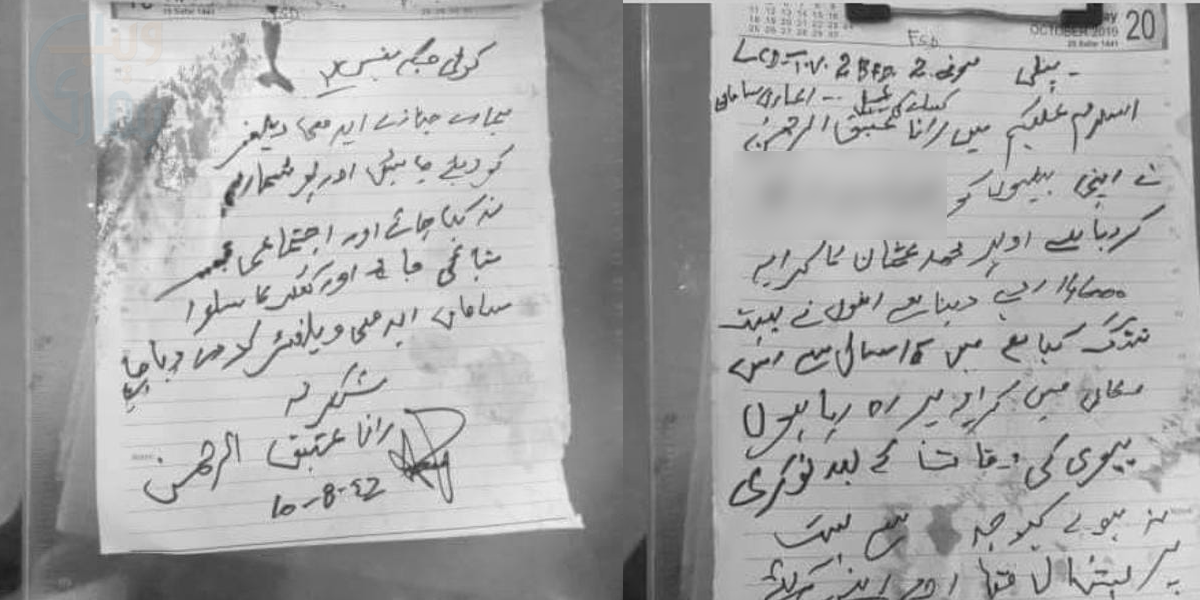 کوئی جگہ نہیں ہے
ہمارے جنازے ایدھی ویلفیئر
کو دیے جائیں اور پوسٹمارٹم
نہ کیا جائے اور اجتماعی
جائے اور گھر کا سارا
سامان ایدھی ویلفیئر کو دے دیا جائے
شکریہ
رانا عتیق الرحمن
10-8-22
20
OCTOBER 2019
20 Safar 1441
FSD
LCD T.V. 2 Bed. 2 صوفے
اسلام علیکم میں رانا عتیق الرحمن
نے اپنی بیٹیوں کو
کر دیا ہے اوپر محمد عثمان کا کرایہ
روپے دینا ہے انہوں نے بہت
تنگ کیا ہے میں 15 سال سے اس
مکان میں کرایہ پر رہ رہا ہوں
بیوی کی وفات کے بعد نوکری
نہ ہونے کیوجہ سے بہت
پریشان تھا اور